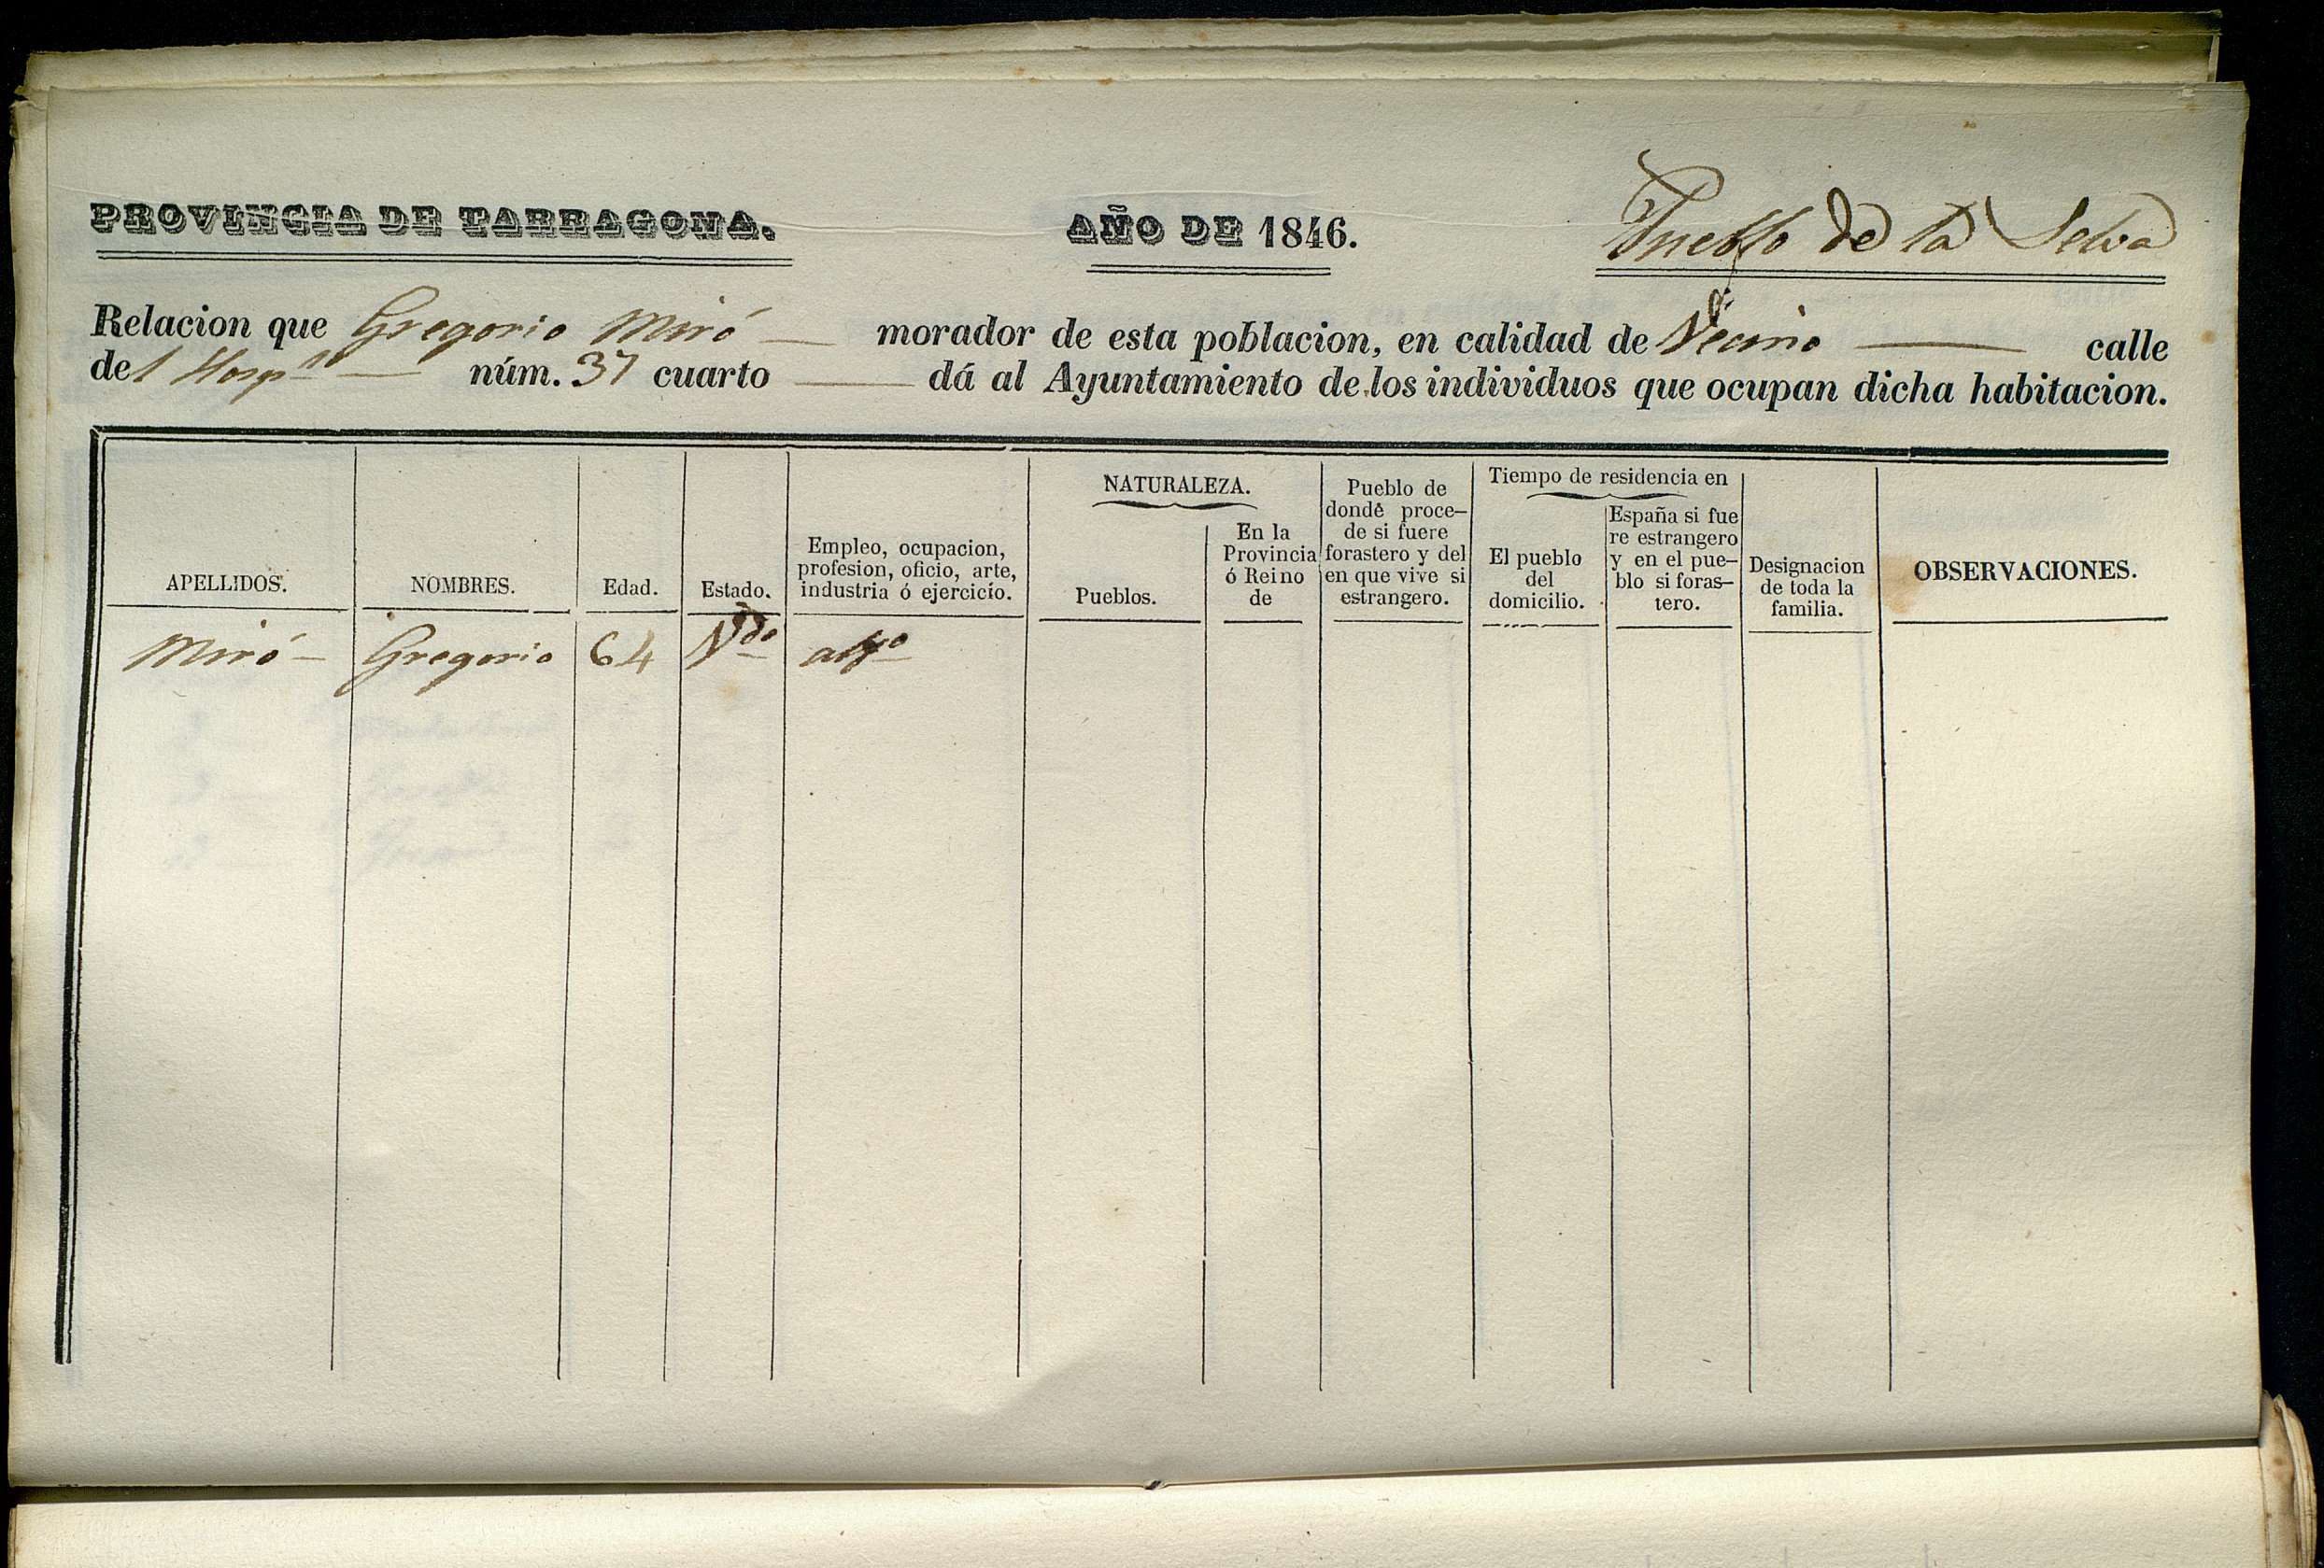 PROVINCIA DE TARRAGONA. AÑO DE 1846. Pueblo de la Selva
Relacion que Gregorio Miró morador de esta poblacion, en calidad de Vecino calle
del Hosp.l núm. 37 cuarto dá al Ayuntamiento de los individuos que ocupan dicha habitacion.
APELLIDOS.
NOMBRES.
Edad.
Estado.
Empleo, ocupacion,
profesion, oficio, arte,
industria ó ejercicio.
NATURALEZA.
Pueblos.
En la
Provincia
ó Reino
de
Pueblo de
donde proce-
de si fuere
forastero y del
en que vive si
estrangero.
Tiempo de residencia en
El pueblo
del
domicilio.
España si fue
re estrangero
y en el pue-
blo si foras-
tero.
Designacion
de toda la
familia.
OBSERVACIONES.
Miró Gregorio 64 Vdo